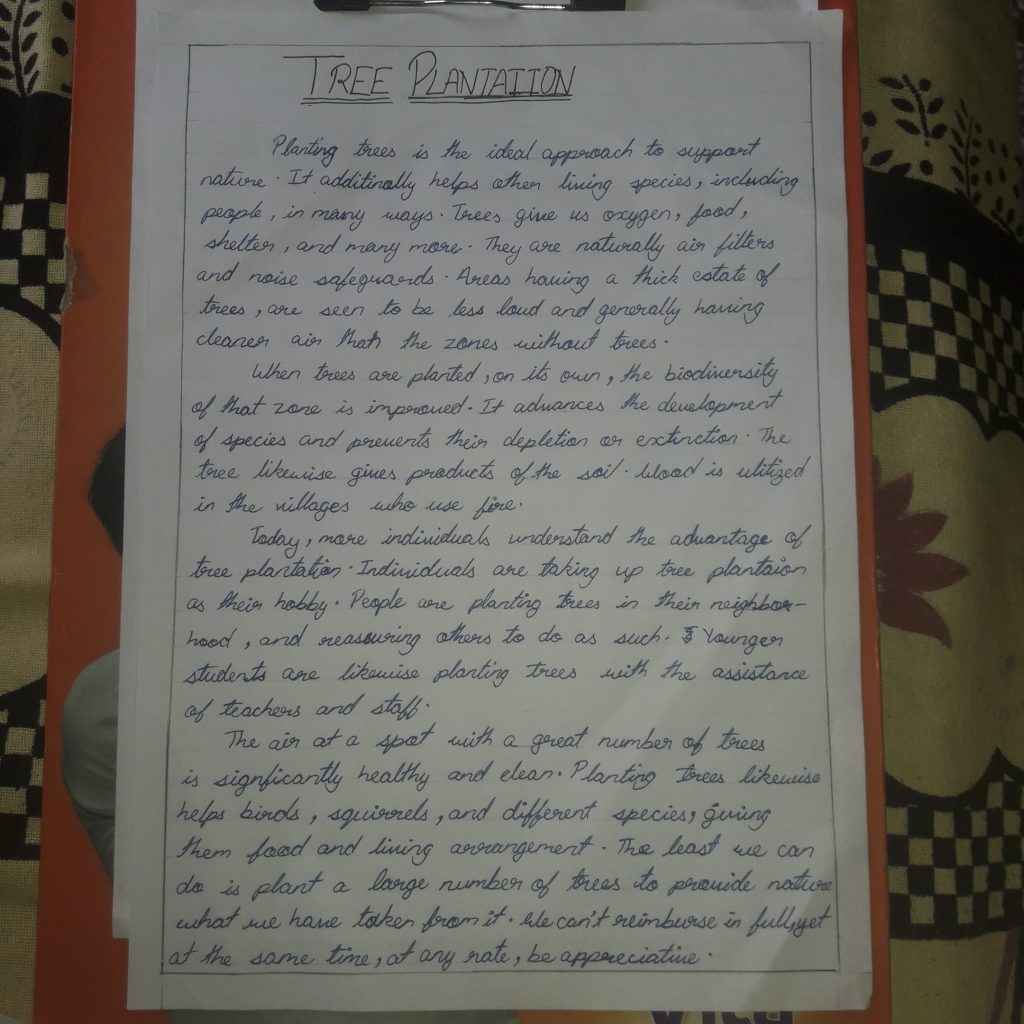 TREE PLANTATION
Planting trees is the ideal approach to support
nature. It additinally helps other living species, including
people, in many ways. Trees give us oxygen, food,
shelter, and many more. They are naturally air filters
and noise safeguards. Areas having a thick estate of
trees, are seen to be less loud and generally having
cleaner air than the zones without trees.
When trees are planted, on its own, the biodiversity
of that zone is improved. It advances the development
of species and prevents their depletion or extinction. The
tree likewise gives products of the soil. Wood is utilized
in the villages who use fire.
Today, more individuals understand the advantage of
tree plantation. Individuals are taking up tree plantaion
as their hobby. People are planting trees in their neighbor-
hood, and reassuring others to do as such. Younger
students are likewise planting trees with the assistance
of teachers and staff.
The air at a spot with a great number of trees
is signficantly healthy and clean. Planting trees likewise
helps birds, squirrels, and different species, giving
them food and living arrangement. The least we can
do is plant a large number of trees to provide nature
what we have taken from it. We can't reimburse in full, yet
at the same time, at any rate, be appreciative.